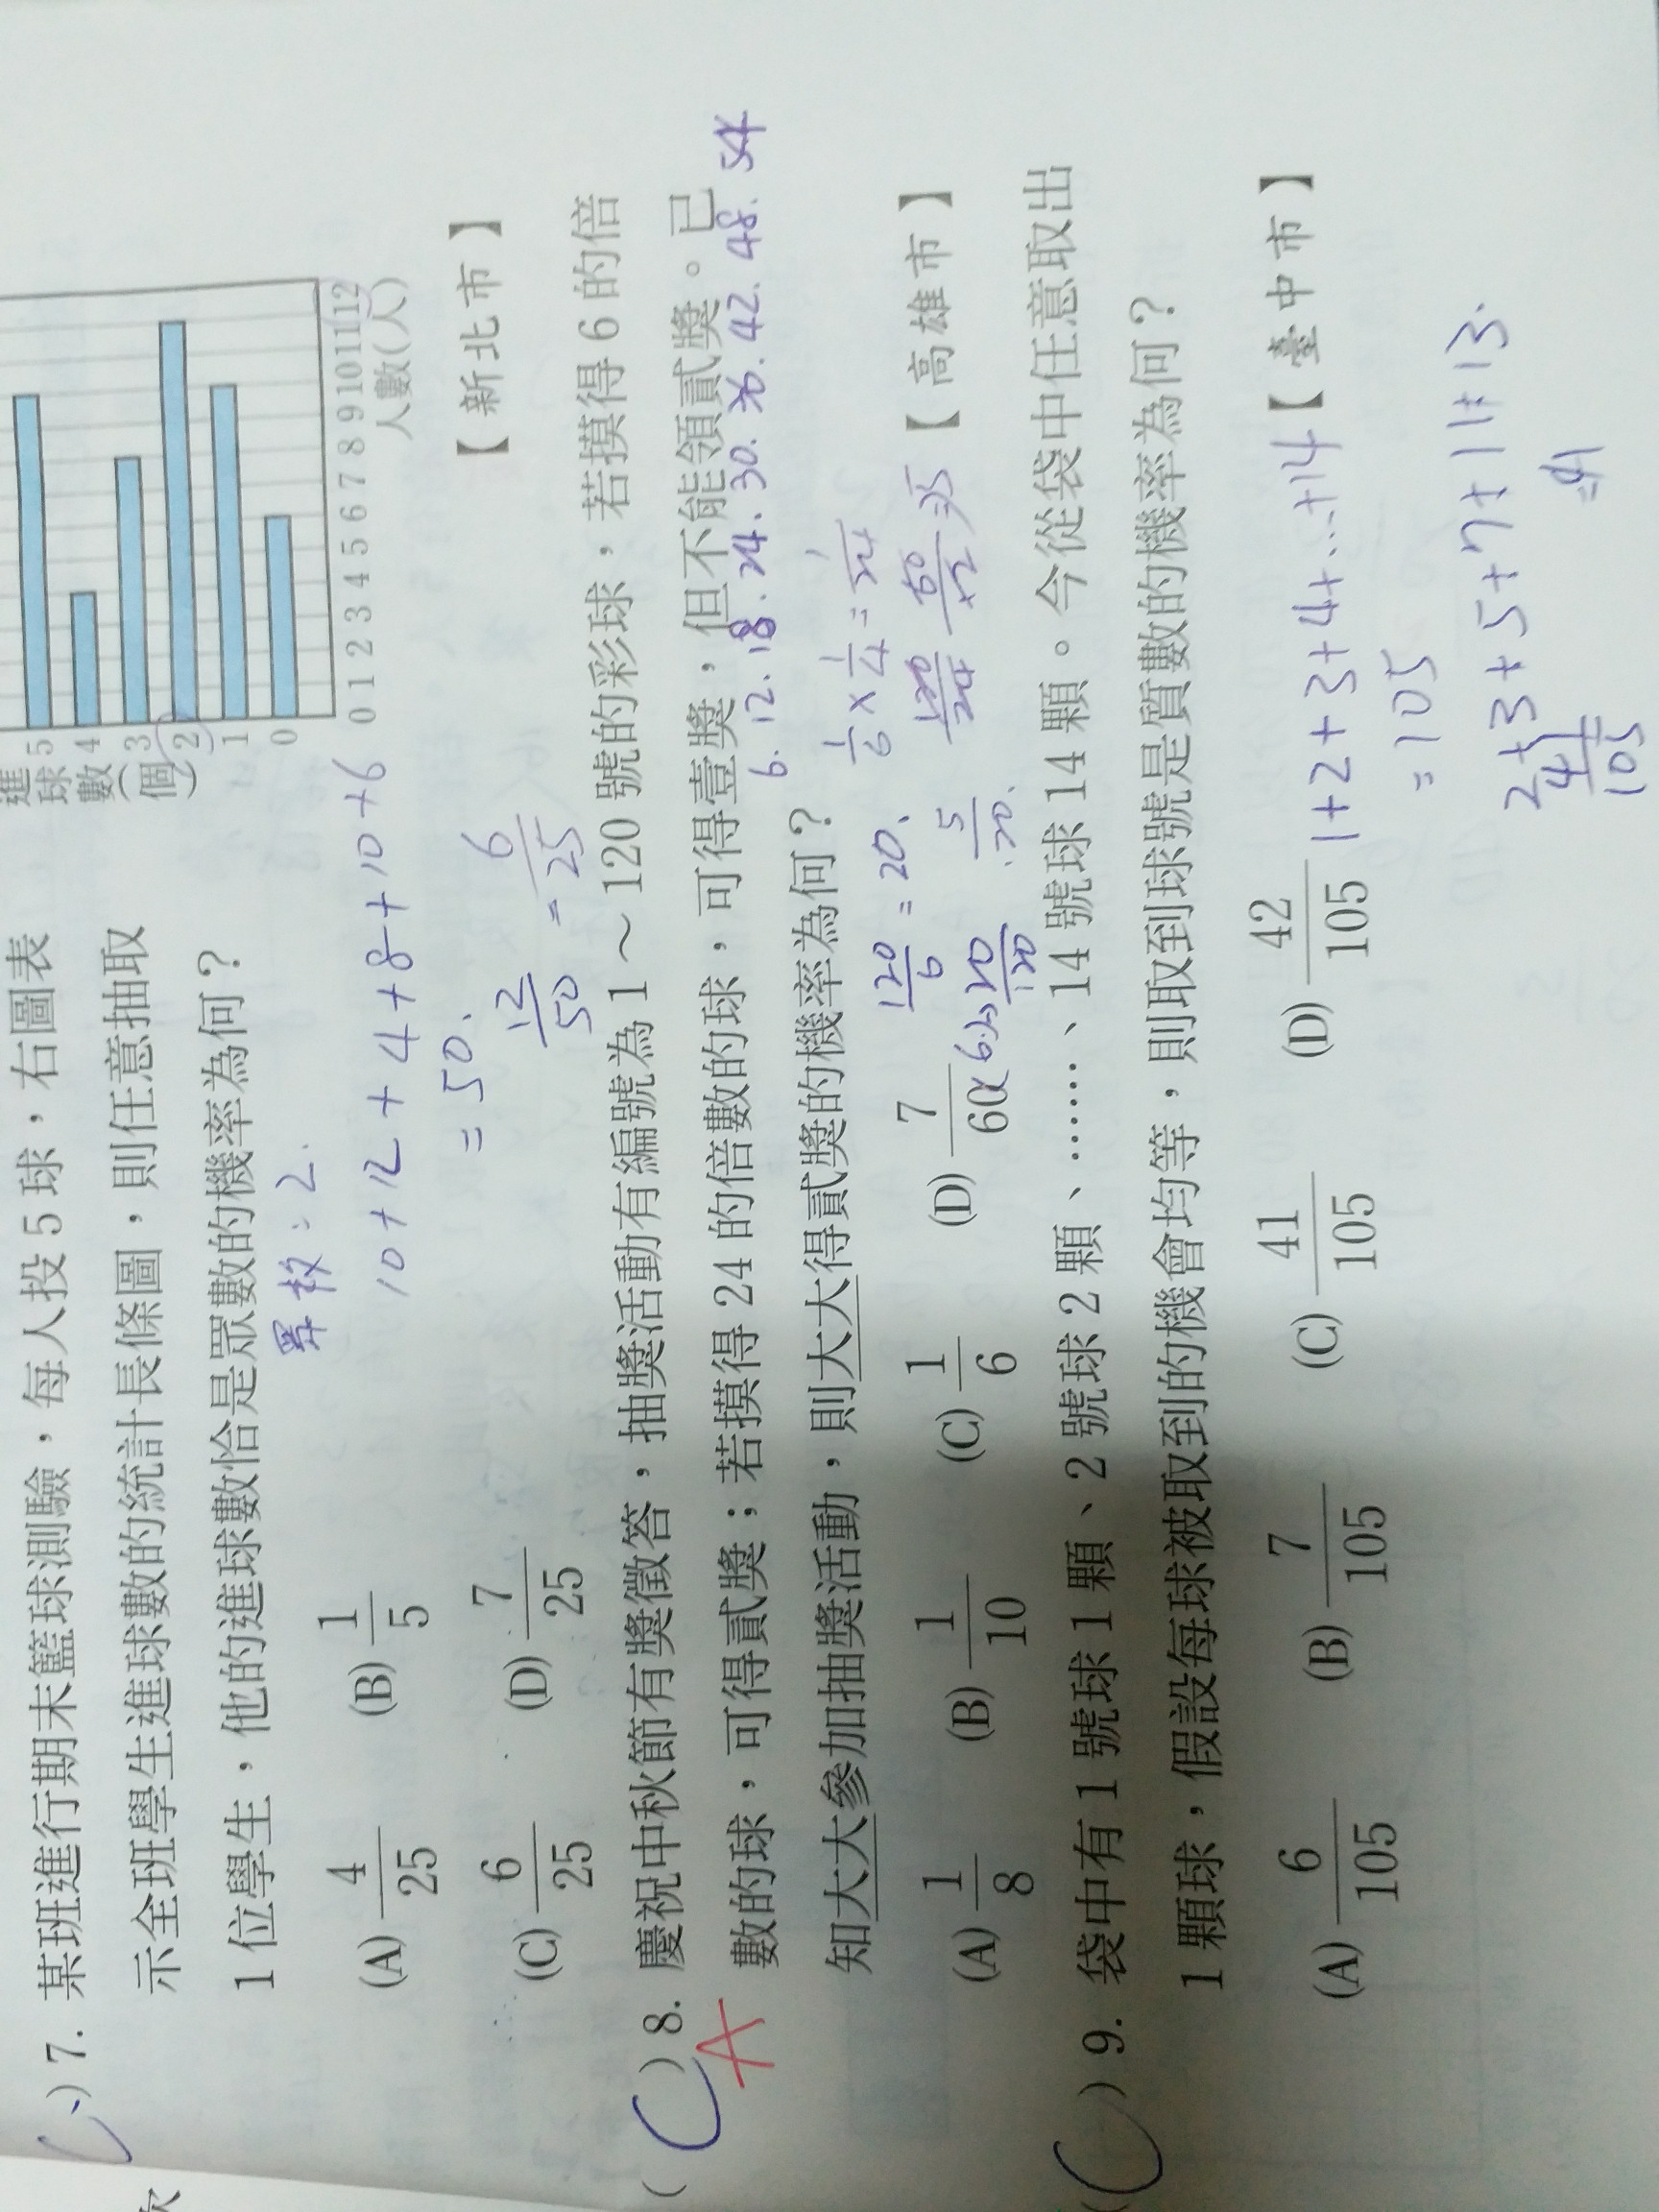 進球數(個)
5
4
3
2
1
0
0 1 2 3 4 5 6 7 8 9 10 11 12
人數(人)
) 7. 某班進行期末籃球測驗，每人投 5 球，右圖表
示全班學生進球數的統計長條圖，則任意抽取
1 位學生，他的進球數恰是眾數的機率為何？
眾數：2.
(A) 4/25 (B) 1/5
10+12+4+8+10+6
=50.
(C) 6/25 (D) 7/25
12/50 = 6/25
【新北市】
( C ) 8. 慶祝中秋節有獎徵答，抽獎活動有編號為 1～120 號的彩球，若摸得 6 的倍
A
數的球，可得貳獎；若摸得 24 的倍數的球，可得壹獎，但不能領貳獎。已
6. 12. 18. 24. 30. 36. 42. 48. 54
知大大參加抽獎活動，則大大得貳獎的機率為何？
1/6 × 1/4 = 1/24
120/6 = 20.
(A) 1/8 (B) 1/10 (C) 1/6 (D) 7/60 【高雄市】
20/120
5/120.
( C ) 9. 袋中有 1 號球 1 顆、2 號球 2 顆、……、14 號球 14 顆。今從袋中任意取出
1 顆球，假設每球被取到的機會均等，則取到球號是質數的機率為何？
(A) 6/105 (B) 7/105 (C) 41/105 (D) 42/105 【臺中市】
1+2+3+4+...+14
=105
2+3+5+7+11+13.
=41
41/105